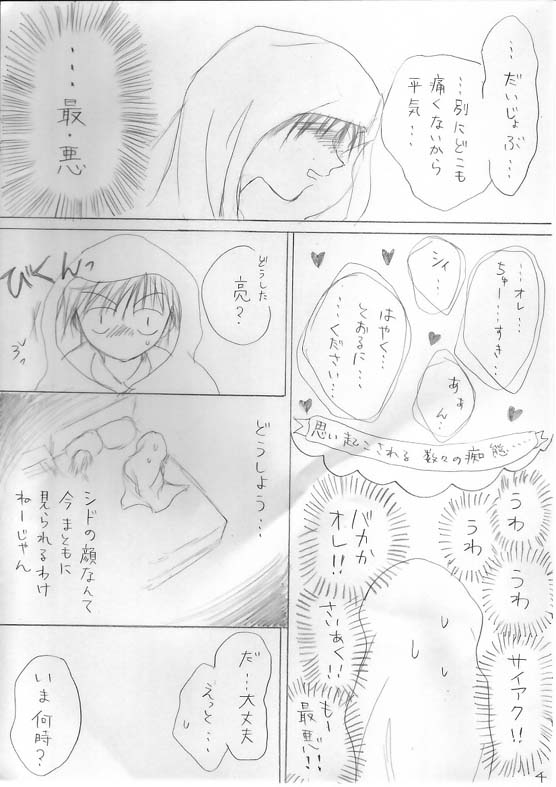 …だいじょぶ…
…別にどこも
痛くないから
平気…
……最・悪
…オレ…
ちゅー…すき…
シィ…
はやく…
しおるに…
…ください…
あぁん…
思い起こされる 数々の痴態……
うわ
うわ
うわ
バカか
オレ!!
サイアク!!
さいあく!!
もー
最悪!!
どうした
亮?
びくんっ
どうしよう…
シドの顔なんて
今まともに
見られるわけ
ねーじゃん
だ…大丈夫
えっと…
いま何時?
4